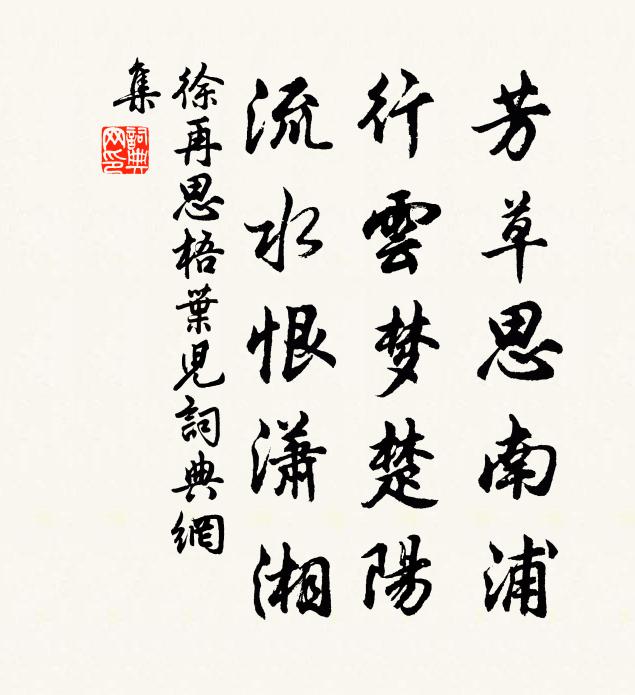 芳草思南浦
行雲梦楚陽
流水恨潇湘
徐再思梧葉児詞典網
集
詞典
网印